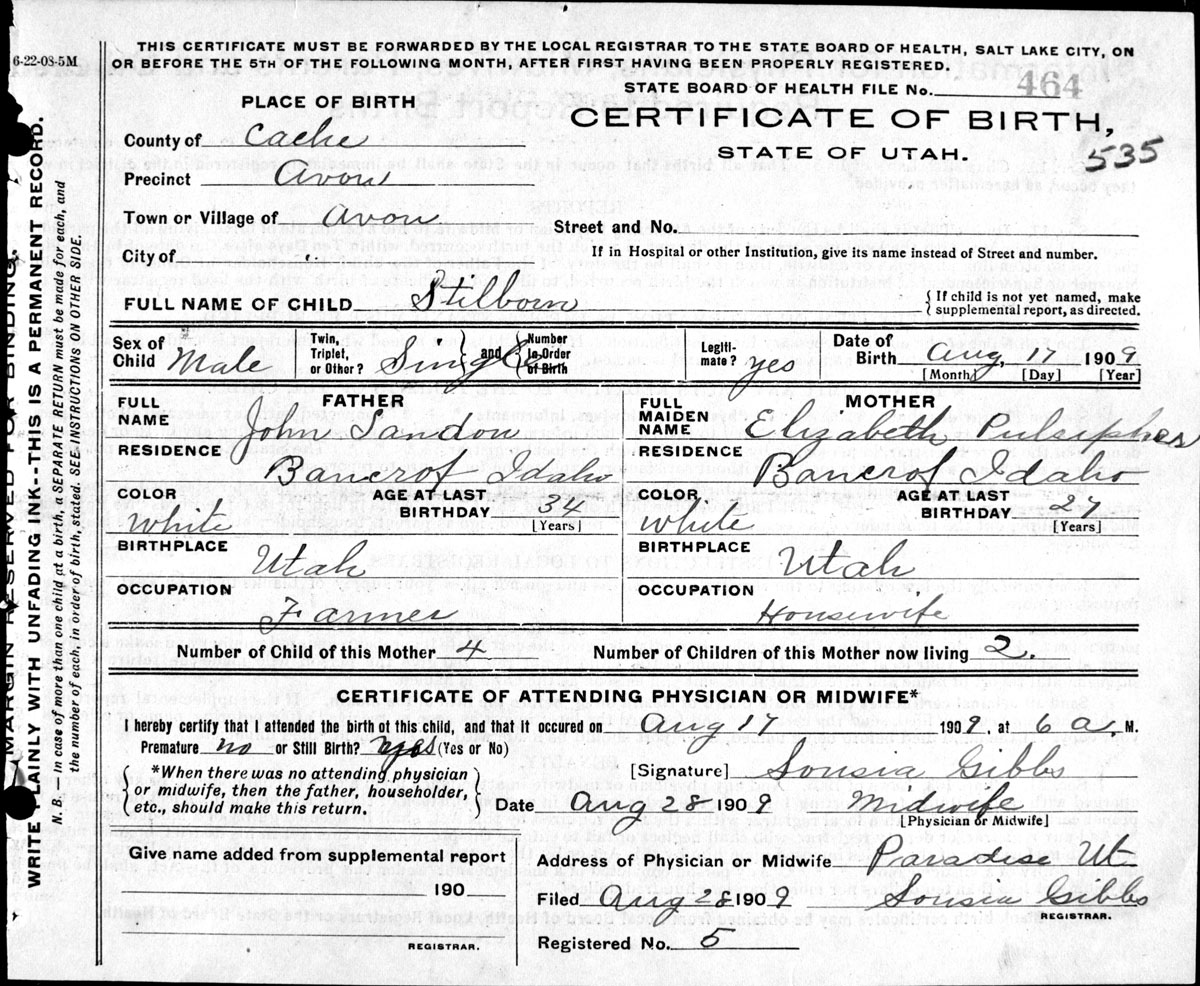 6-22-08-5M
THIS CERTIFICATE MUST BE FORWARDED BY THE LOCAL REGISTRAR TO THE STATE BOARD OF HEALTH, SALT LAKE CITY, ON
OR BEFORE THE 5TH OF THE FOLLOWING MONTH, AFTER FIRST HAVING BEEN PROPERLY REGISTERED.
STATE BOARD OF HEALTH FILE No. 464
PLACE OF BIRTH
CERTIFICATE OF BIRTH,
STATE OF UTAH.
535
County of Cache
Precinct Avon
Town or Village of Avon
Street and No.
City of
If in Hospital or other Institution, give its name instead of Street and number.
FULL NAME OF CHILD Stilborn
{ If child is not yet named, make
supplemental report, as directed.
Sex of Child Male
Twin, Triplet, or Other? Single
and Number in Order of Birth
Legiti-mate? yes
Date of Birth Aug. 17 1909
[Month] [Day] [Year]
FATHER
FULL NAME John Sandon
RESIDENCE Bancrof Idaho
COLOR White
AGE AT LAST BIRTHDAY 34 [Years]
BIRTHPLACE Utah
OCCUPATION Farmer
MOTHER
FULL MAIDEN NAME Elizabeth Pulsipher
RESIDENCE Bancrof Idaho
COLOR White
AGE AT LAST BIRTHDAY 27 [Years]
BIRTHPLACE Utah
OCCUPATION Housewife
Number of Child of this Mother 4
Number of Children of this Mother now living 2.
CERTIFICATE OF ATTENDING PHYSICIAN OR MIDWIFE*
I hereby certify that I attended the birth of this child, and that it occured on Aug 17 1909, at 6 a. M.
Premature no or Still Birth? yes (Yes or No)
*When there was no attending physician
or midwife, then the father, householder,
etc., should make this return.
[Signature] Gibbs
Date Aug 28 1909 Midwife
[Physician or Midwife]
Give name added from supplemental report
190
REGISTRAR.
Address of Physician or Midwife Paradise Ut.
Filed Aug 28 1909 Gibbs
REGISTRAR.
Registered No. 5
MARGIN RESERVED FOR BINDING.
WRITE PLAINLY WITH UNFADING INK--THIS IS A PERMANENT RECORD.
N. B. In case of more than one child at a birth, a SEPARATE RETURN must be made for each, and
the number of each, in order of birth, stated. SEE INSTRUCTIONS ON OTHER SIDE.